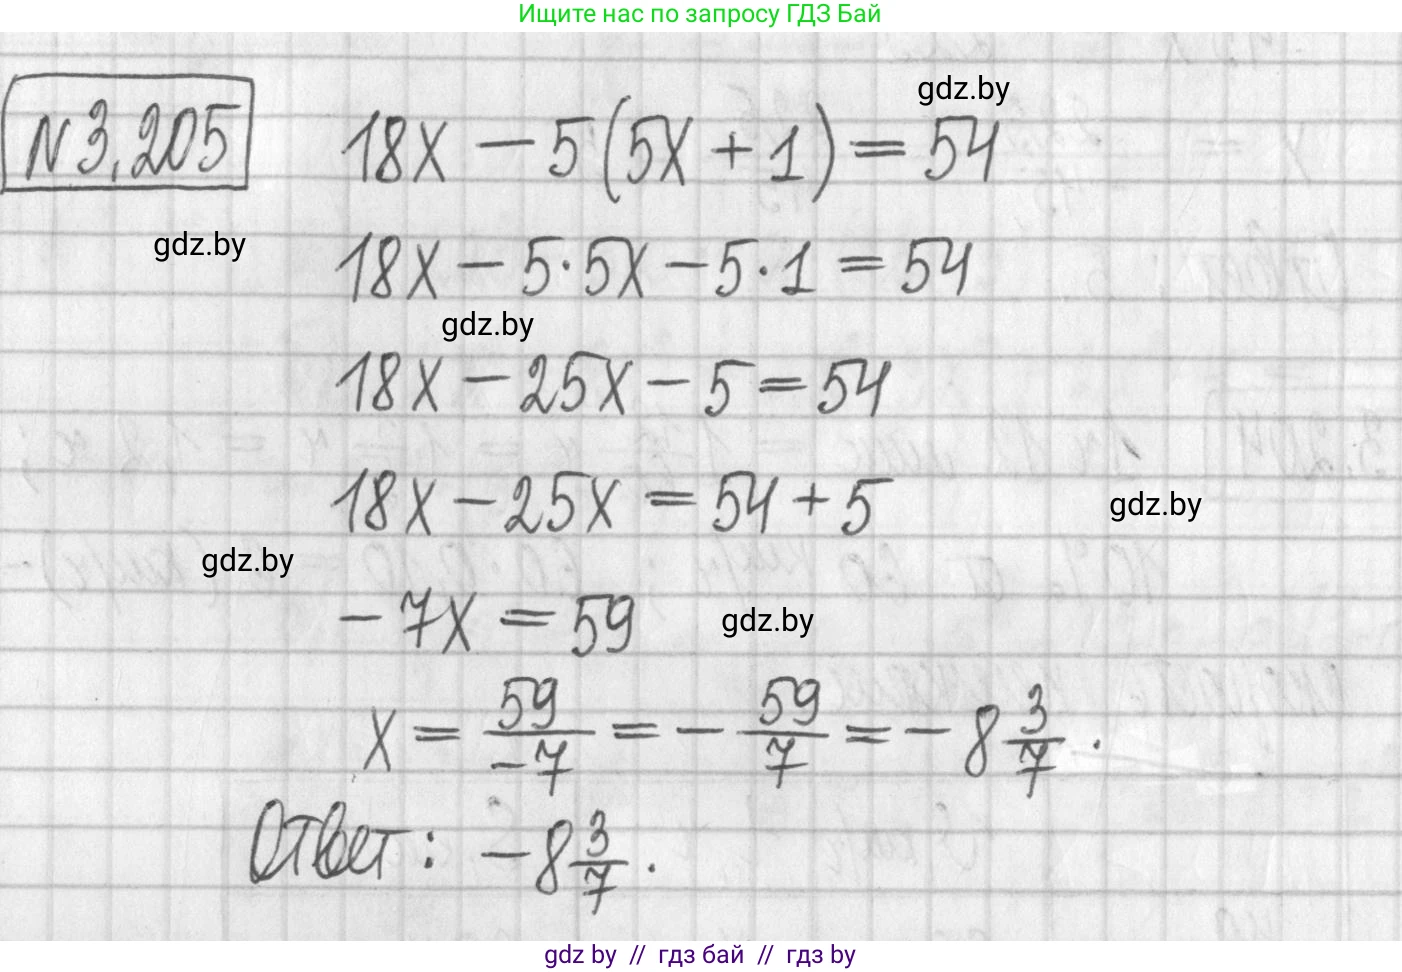 Ищите нас по запросу ГДЗ Бай
N 3,205
18x - 5(5x + 1) = 54
gdz.by
18x - 5·5x - 5·1 = 54
gdz.by
gdz.by
18x - 25x - 5 = 54
18x - 25x = 54 + 5
gdz.by
gdz.by
-7x = 59
gdz.by
x = 59/-7 = - 59/7 = -8 3/7.
Ответ: -8 3/7.
gdz by // гдз бай // гдз by